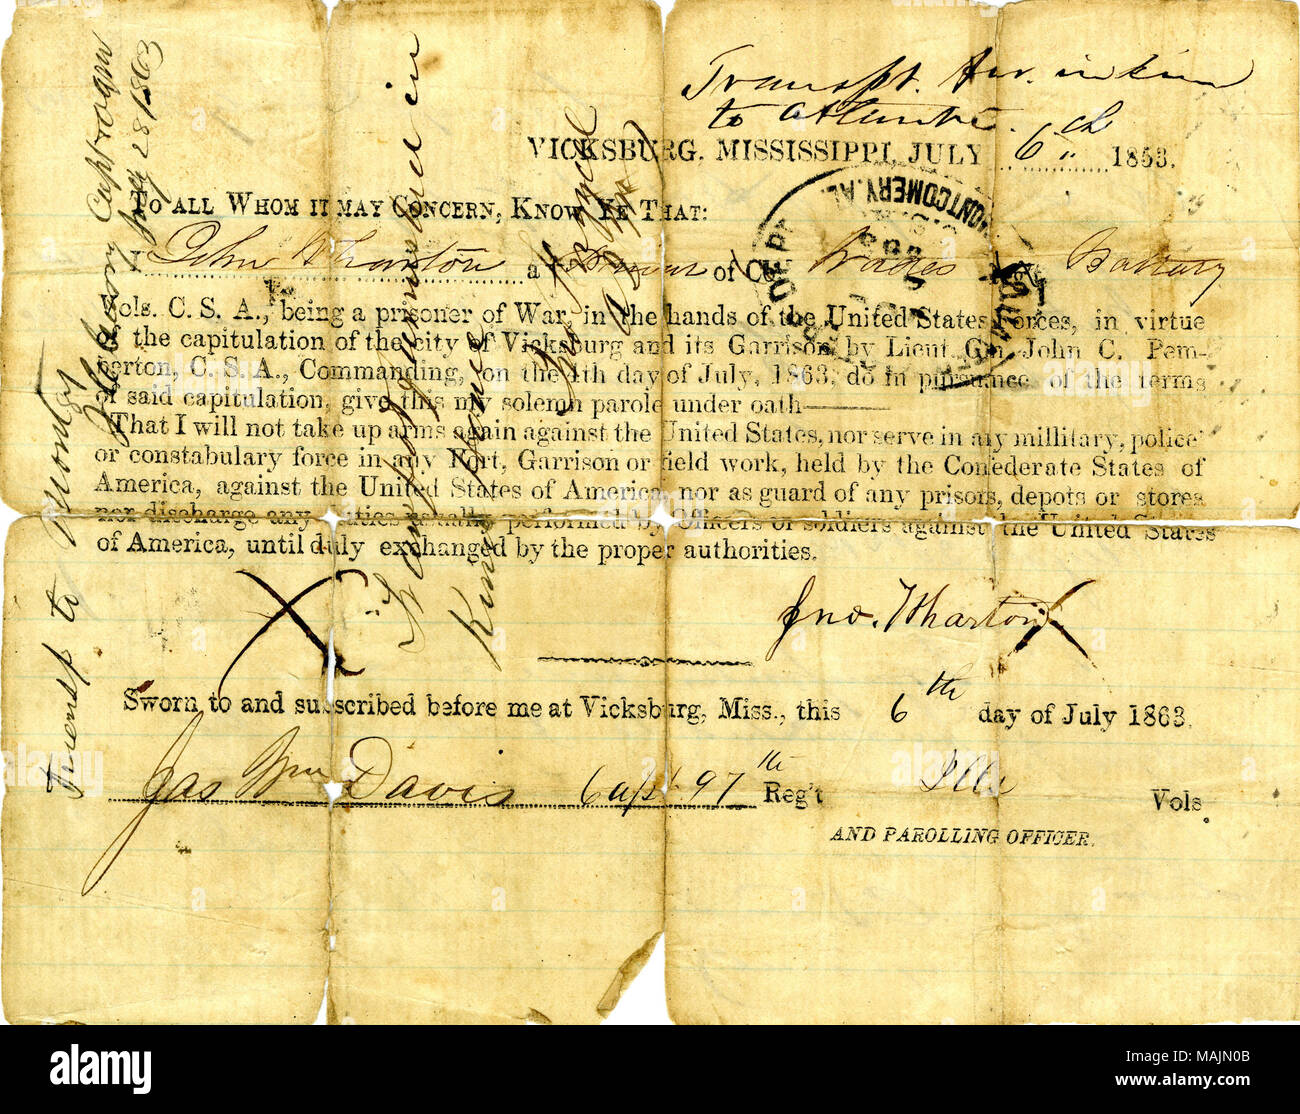 Transpt. fur. in kind
to Atlanta.
VICKSBURG, MISSISSIPPI, JULY 6th 1863.
TO ALL WHOM IT MAY CONCERN, KNOW YE THAT:
I John Wharton a of Co. Wades Battery
Vols. C. S. A., being a prisoner of War, in the hands of the United States Forces, in virtue
of the capitulation of the city of Vicksburg and its Garrison, by Lieut. Gen. John C. Pem-
berton, C. S. A., Commanding, on the 4th day of July, 1863, do in pursuance of the terms
of said capitulation, give this my solemn parole under oath———
That I will not take up arms again against the United States, nor serve in any millitary, police
or constabulary force in any Fort, Garrison or field work, held by the Confederate States of
America, against the United States of America, nor as guard of any prisors, depots or stores
nor discharge any duties usually performed by Officers or soldiers against the United States
of America, until duly exchanged by the proper authorities.
Jno. Wharton
Sworn to and subscribed before me at Vicksburg, Miss., this 6th day of July 1863.
Jas Wm Davis Capt 97th Reg't Ills Vols.
AND PAROLLING OFFICER.
Transp to
July 28 1863
Transpt furnished in
Kind
MONTGOMERY, AL
alamy
Image ID: MAJN0B
www.alamy.com